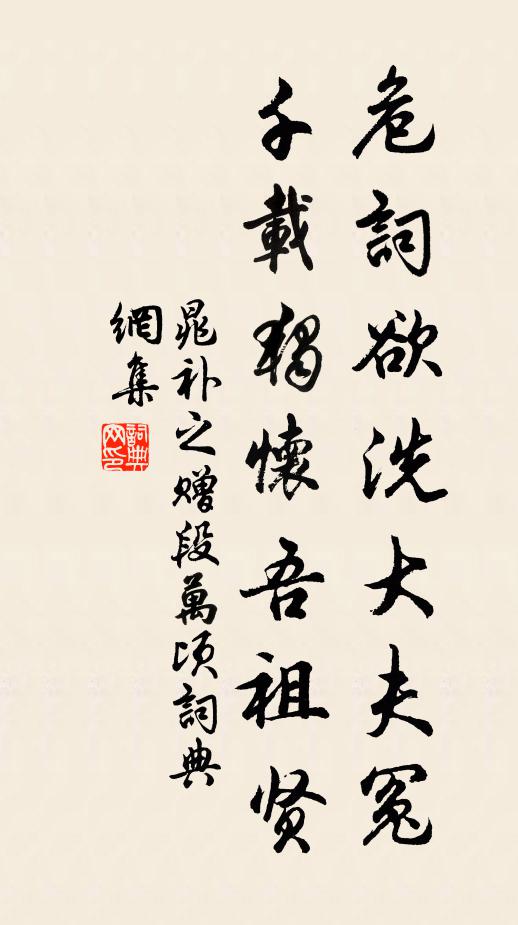 危詞欲洗大夫冤
千載獨懷吾祖贤
晁补之赠段萬顷詞典
網集
詞典
网印